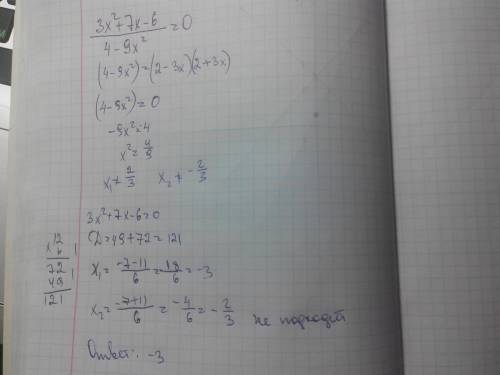 (3x²+7x-6)/(4-9x²)=0
(4-9x²)=(2-3x)(2+3x)
(4-9x²)=0
-9x²=-4
x²=4/9
x₁≠2/3 x₂≠-2/3
3x²+7x-6=0
D=49+72=121
x₁=(-7-11)/6=18/6=-3
x₂=(-7+11)/6=-4/6=-2/3 не подходит
Ответ: -3
12
x 6
72
49
121